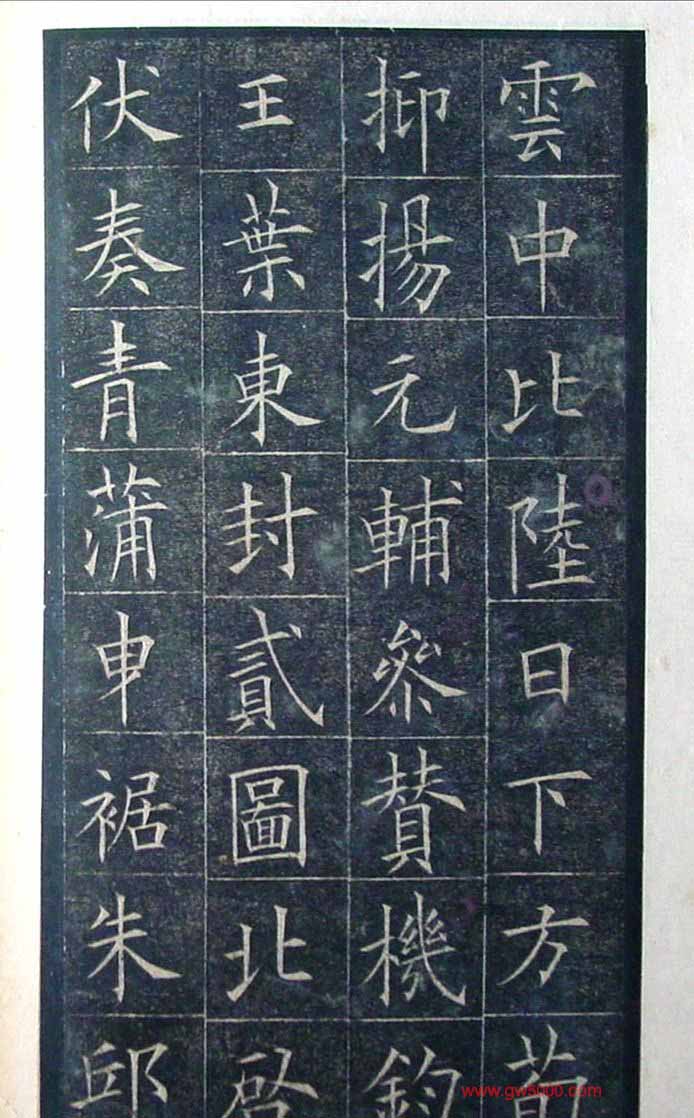 雲中比陸日下方荀
抑揚元輔參贊機鈞
王葉東封貳圖北啓
伏奏青蒲申裾朱邱
www.gw5000.com